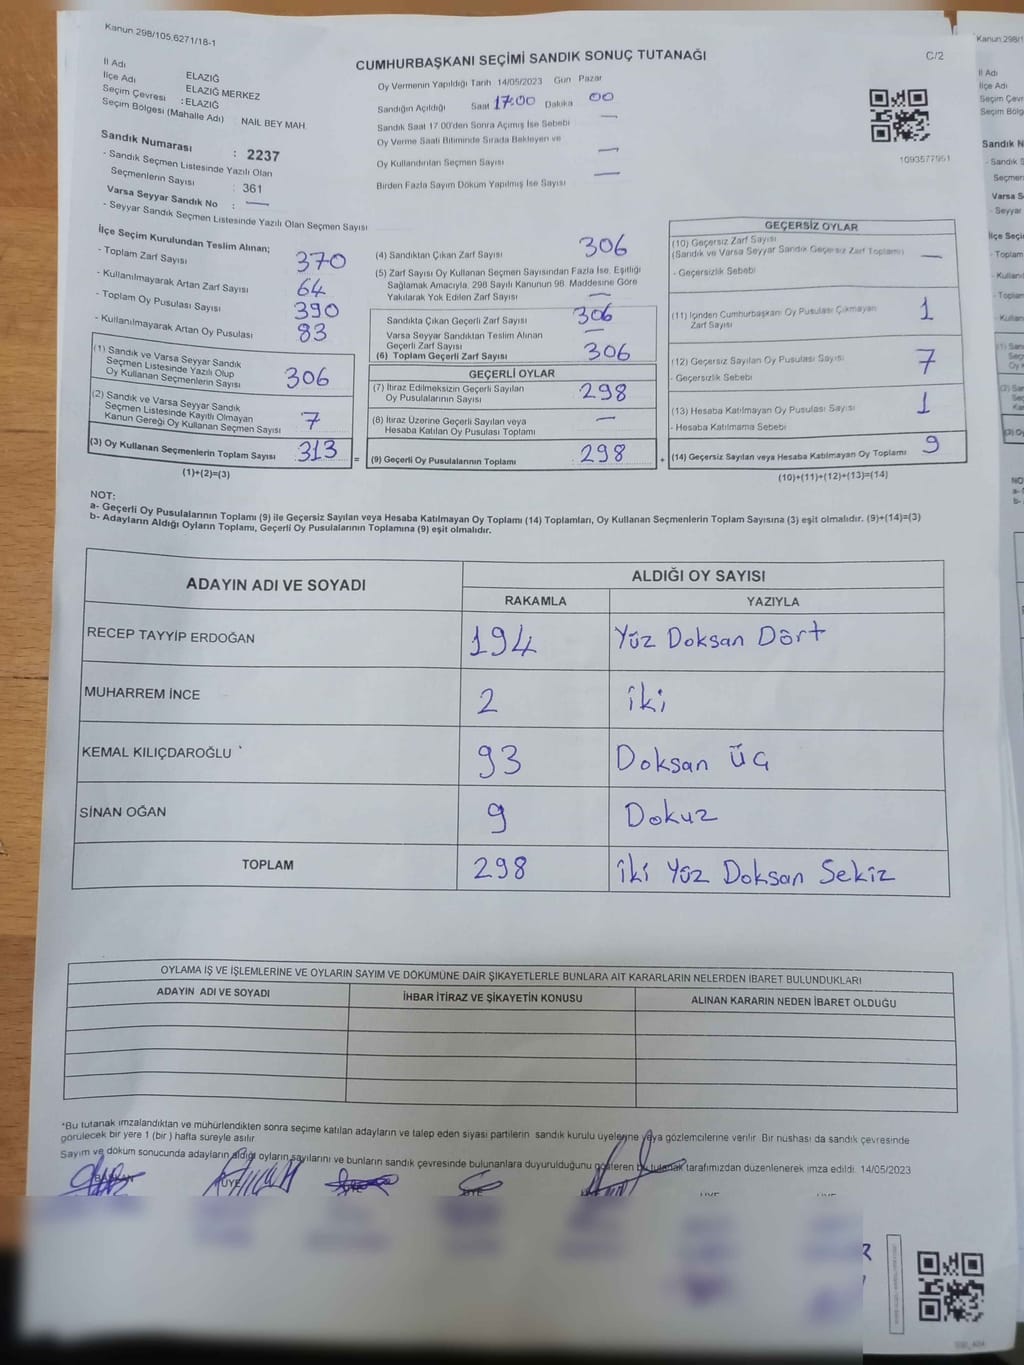 Kanun 298/105,6271/18-1
CUMHURBAŞKANI SEÇİMİ SANDIK SONUÇ TUTANAĞI
C/2
İl Adı ELAZIĞ
İlçe Adı ELAZIĞ MERKEZ
Seçim Çevresi : ELAZIĞ
Seçim Bölgesi (Mahalle Adı) NAIL BEY MAH.
Oy Vermenin Yapıldığı Tarih 14/05/2023 Gün Pazar
Sandığın Açıldığı Saat 17:00 Dakika 00
Sandık Saat 17 00'den Sonra Açımış İse Sebebi —
Oy Verme Saati Bitiminde Sırada Bekleyen ve
Oy Kullandırılan Seçmen Sayısı —
Birden Fazla Sayım Döküm Yapılmış İse Sayısı —
1093577951
Sandık Numarası : 2237
- Sandık Seçmen Listesinde Yazılı Olan
Seçmenlerin Sayısı : 361
Varsa Seyyar Sandık No : —
- Seyyar Sandık Seçmen Listesinde Yazılı Olan Seçmen Sayısı
İlçe Seçim Kurulundan Teslim Alınan;
- Toplam Zarf Sayısı 370
- Kullanılmayarak Artan Zarf Sayısı 64
- Toplam Oy Pusulası Sayısı 390
- Kullanılmayarak Artan Oy Pusulası 83
(1) Sandık ve Varsa Seyyar Sandık
Seçmen Listesinde Yazılı Olup
Oy Kullanan Seçmenlerin Sayısı 306
(2) Sandık ve Varsa Seyyar Sandık
Seçmen Listesinde Kayıtlı Olmayan
Kanun Gereği Oy Kullanan Seçmen Sayısı 7
(3) Oy Kullanan Seçmenlerin Toplam Sayısı 313 =
(1)+(2)=(3)
(4) Sandıktan Çıkan Zarf Sayısı 306
(5) Zarf Sayısı Oy Kullanan Seçmen Sayısından Fazla İse, Eşitliği
Sağlamak Amacıyla, 298 Sayılı Kanunun 98. Maddesine Göre
Yakılarak Yok Edilen Zarf Sayısı —
Sandıkta Çıkan Geçerli Zarf Sayısı 306
Varsa Seyyar Sandıktan Teslim Alınan
Geçerli Zarf Sayısı —
(6) Toplam Geçerli Zarf Sayısı 306
GEÇERLİ OYLAR
(7) İtiraz Edilmeksizin Geçerli Sayılan
Oy Pusulalarının Sayısı 298
(8) İtiraz Üzerine Geçerli Sayılan veya
Hesaba Katılan Oy Pusulası Toplamı —
(9) Geçerli Oy Pusulalarının Toplamı 298 +
GEÇERSİZ OYLAR
(10) Geçersiz Zarf Sayısı
(Sandık ve Varsa Seyyar Sandık Geçersiz Zarf Toplamı) —
- Geçersizlik Sebebi
(11) İçinden Cumhurbaşkanı Oy Pusulası Çıkmayan
Zarf Sayısı 1
(12) Geçersiz Sayılan Oy Pusulası Sayısı 7
- Geçersizlik Sebebi
(13) Hesaba Katılmayan Oy Pusulası Sayısı 1
- Hesaba Katılmama Sebebi
(14) Geçersiz Sayılan veya Hesaba Katılmayan Oy Toplamı 9
(10)+(11)+(12)+(13)=(14)
NOT:
a- Geçerli Oy Pusulalarının Toplamı (9) ile Geçersiz Sayılan veya Hesaba Katılmayan Oy Toplamı (14) Toplamları, Oy Kullanan Seçmenlerin Toplam Sayısına (3) eşit olmalıdır. (9)+(14)=(3)
b- Adayların Aldığı Oyların Toplamı, Geçerli Oy Pusulalarının Toplamına (9) eşit olmalıdır.
ADAYIN ADI VE SOYADI
ALDIĞI OY SAYISI
RAKAMLA YAZIYLA
RECEP TAYYİP ERDOĞAN 194 Yüz Doksan Dört
MUHARREM İNCE 2 iki
KEMAL KILIÇDAROĞLU 93 Doksan Üç
SİNAN OĞAN 9 Dokuz
TOPLAM 298 iki Yüz Doksan Sekiz
OYLAMA İŞ VE İŞLEMLERİNE VE OYLARIN SAYIM VE DÖKÜMÜNE DAİR ŞİKAYETLERLE BUNLARA AİT KARARLARIN NELERDEN İBARET BULUNDUKLARI
ADAYIN ADI VE SOYADI İHBAR İTİRAZ VE ŞİKAYETİN KONUSU ALINAN KARARIN NEDEN İBARET OLDUĞU
*Bu tutanak imzalandıktan ve mühürlendikten sonra seçime katılan adayların ve talep eden siyasi partilerin sandık kurulu üyelerine veya gözlemcilerine verilir. Bir nüshası da sandık çevresinde
görülecek bir yere 1 (bir ) hafta süreyle asılır
Sayım ve döküm sonucunda adayların aldığı oyların sayılarını ve bunların sandık çevresinde bulunanlara duyurulduğunu gösteren bu tutanak tarafımızdan düzenlenerek imza edildi. 14/05/2023
ÜYE
ÜYE